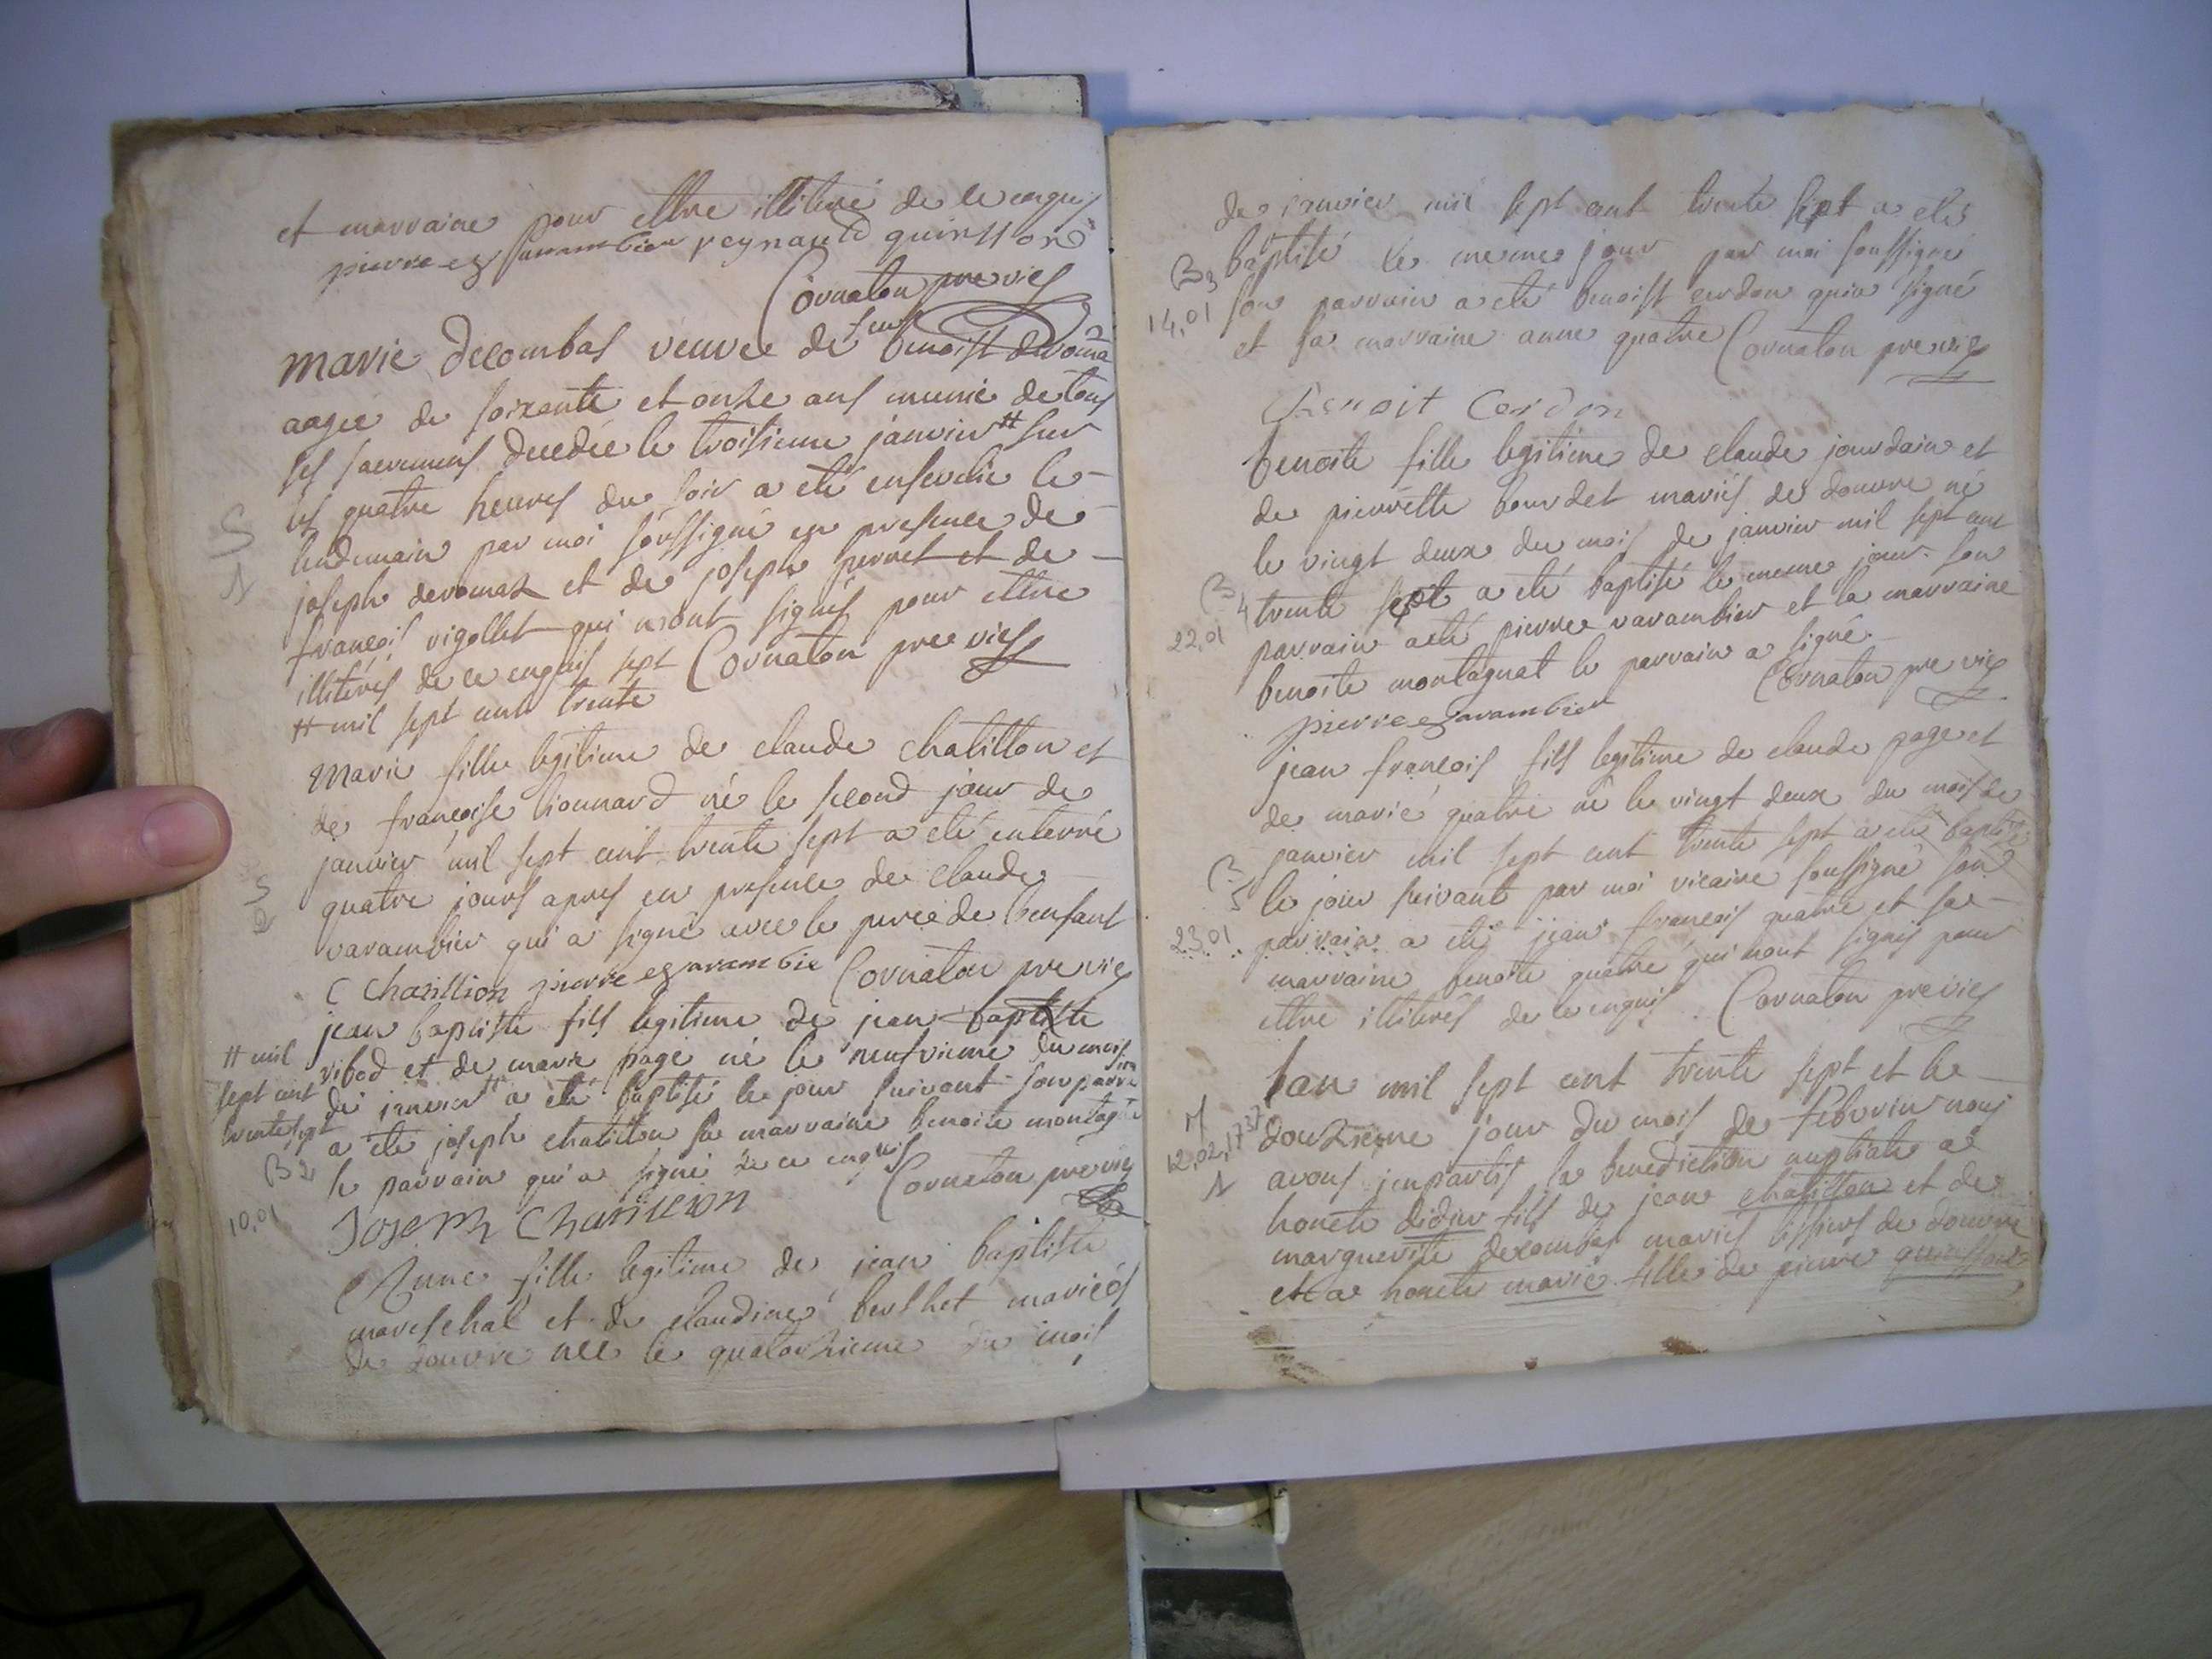 et marraine pour ettre illiteré de ce enquis
pierre varambier reynauld quinsson
Cornaton pre vic
feu
marie decombas veuve de benoist deroma
aagée de soixante et onze ans munie de tous
ses sacremens decedée le troisieme janvier # sur
les quatre heures du soir a eté ensevelie le
S
lendemain par moi soussigné en presence de
1
joseph deromas et de joseph perret et de
francois rigollet qui n'ont signés pour ettre
illiterés de ce enquis sept Cornaton pre vic
# mil sept cent trente
Marie fille legitime de claude chatillon et
de francoise lionnard né le second jour de
janvier mil sept cent trente sept a eté enterré
quatre jours apres en presence de claude
S
2
varambier qui a signé avec le pere de l'enfant
C Chatillion pierre varambie Cornaton pre vic
jean baptiste fils legitime de jean baptiste
# mil
ribod et de marie page né le neufvieme du mois
sept cent
de janvier # a eté baptisé le jour suivant son parrain
trente sept
a eté joseph chatillon sa marraine benoite montagnat
B2
le parrain qui a signé de ce enquis
Cornaton pre vic
10,01
Joseph Chatillion
Anne fille legitime de jean baptiste
mareschal et de claudine berthet mariés
de douvre née le quatorzieme du mois
de janvier mil sept cent trente sept a etés
B3
baptisé le meme jour par moi soussigné
14,01
son parrain a eté benoist cordon qui a signé
et sa marraine anne quatre Cornaton pre vic
Benoit Cordon
benoite fille legitime de claude jourdain et
de pierrette bourdet mariés de douvre né
le vingt deux du mois de janvier mil sept cent
B4
trente sept a eté baptisé le meme jour son
22,01
parrain a eté pierre varambier et la marraine
benoite montagnat le parrain a signé
Cornaton pre vic
pierre varambier
jean francois fils legitime de claude page et
de marie quatre né le vingt deux du mois de
janvier mil sept cent trente sept a eté baptisé
B5
le jour suivant par moi vicaire soussigné son
23,01
parrain a eté jean francois quatre et sa
marraine benoite quatre qui n'ont signés pour
ettre illiterés de ce enquis Cornaton pre vic
lan mil sept cent trente sept et le
M
douzieme jour du mois de febvrier nous
12,02,1737
avons impartis la benediction nuptiale a
1
honete didier fils de jean chatillon et de
marguerite decombas mariés tissiers de douvre
et a honete marie fille de pierre quinsson